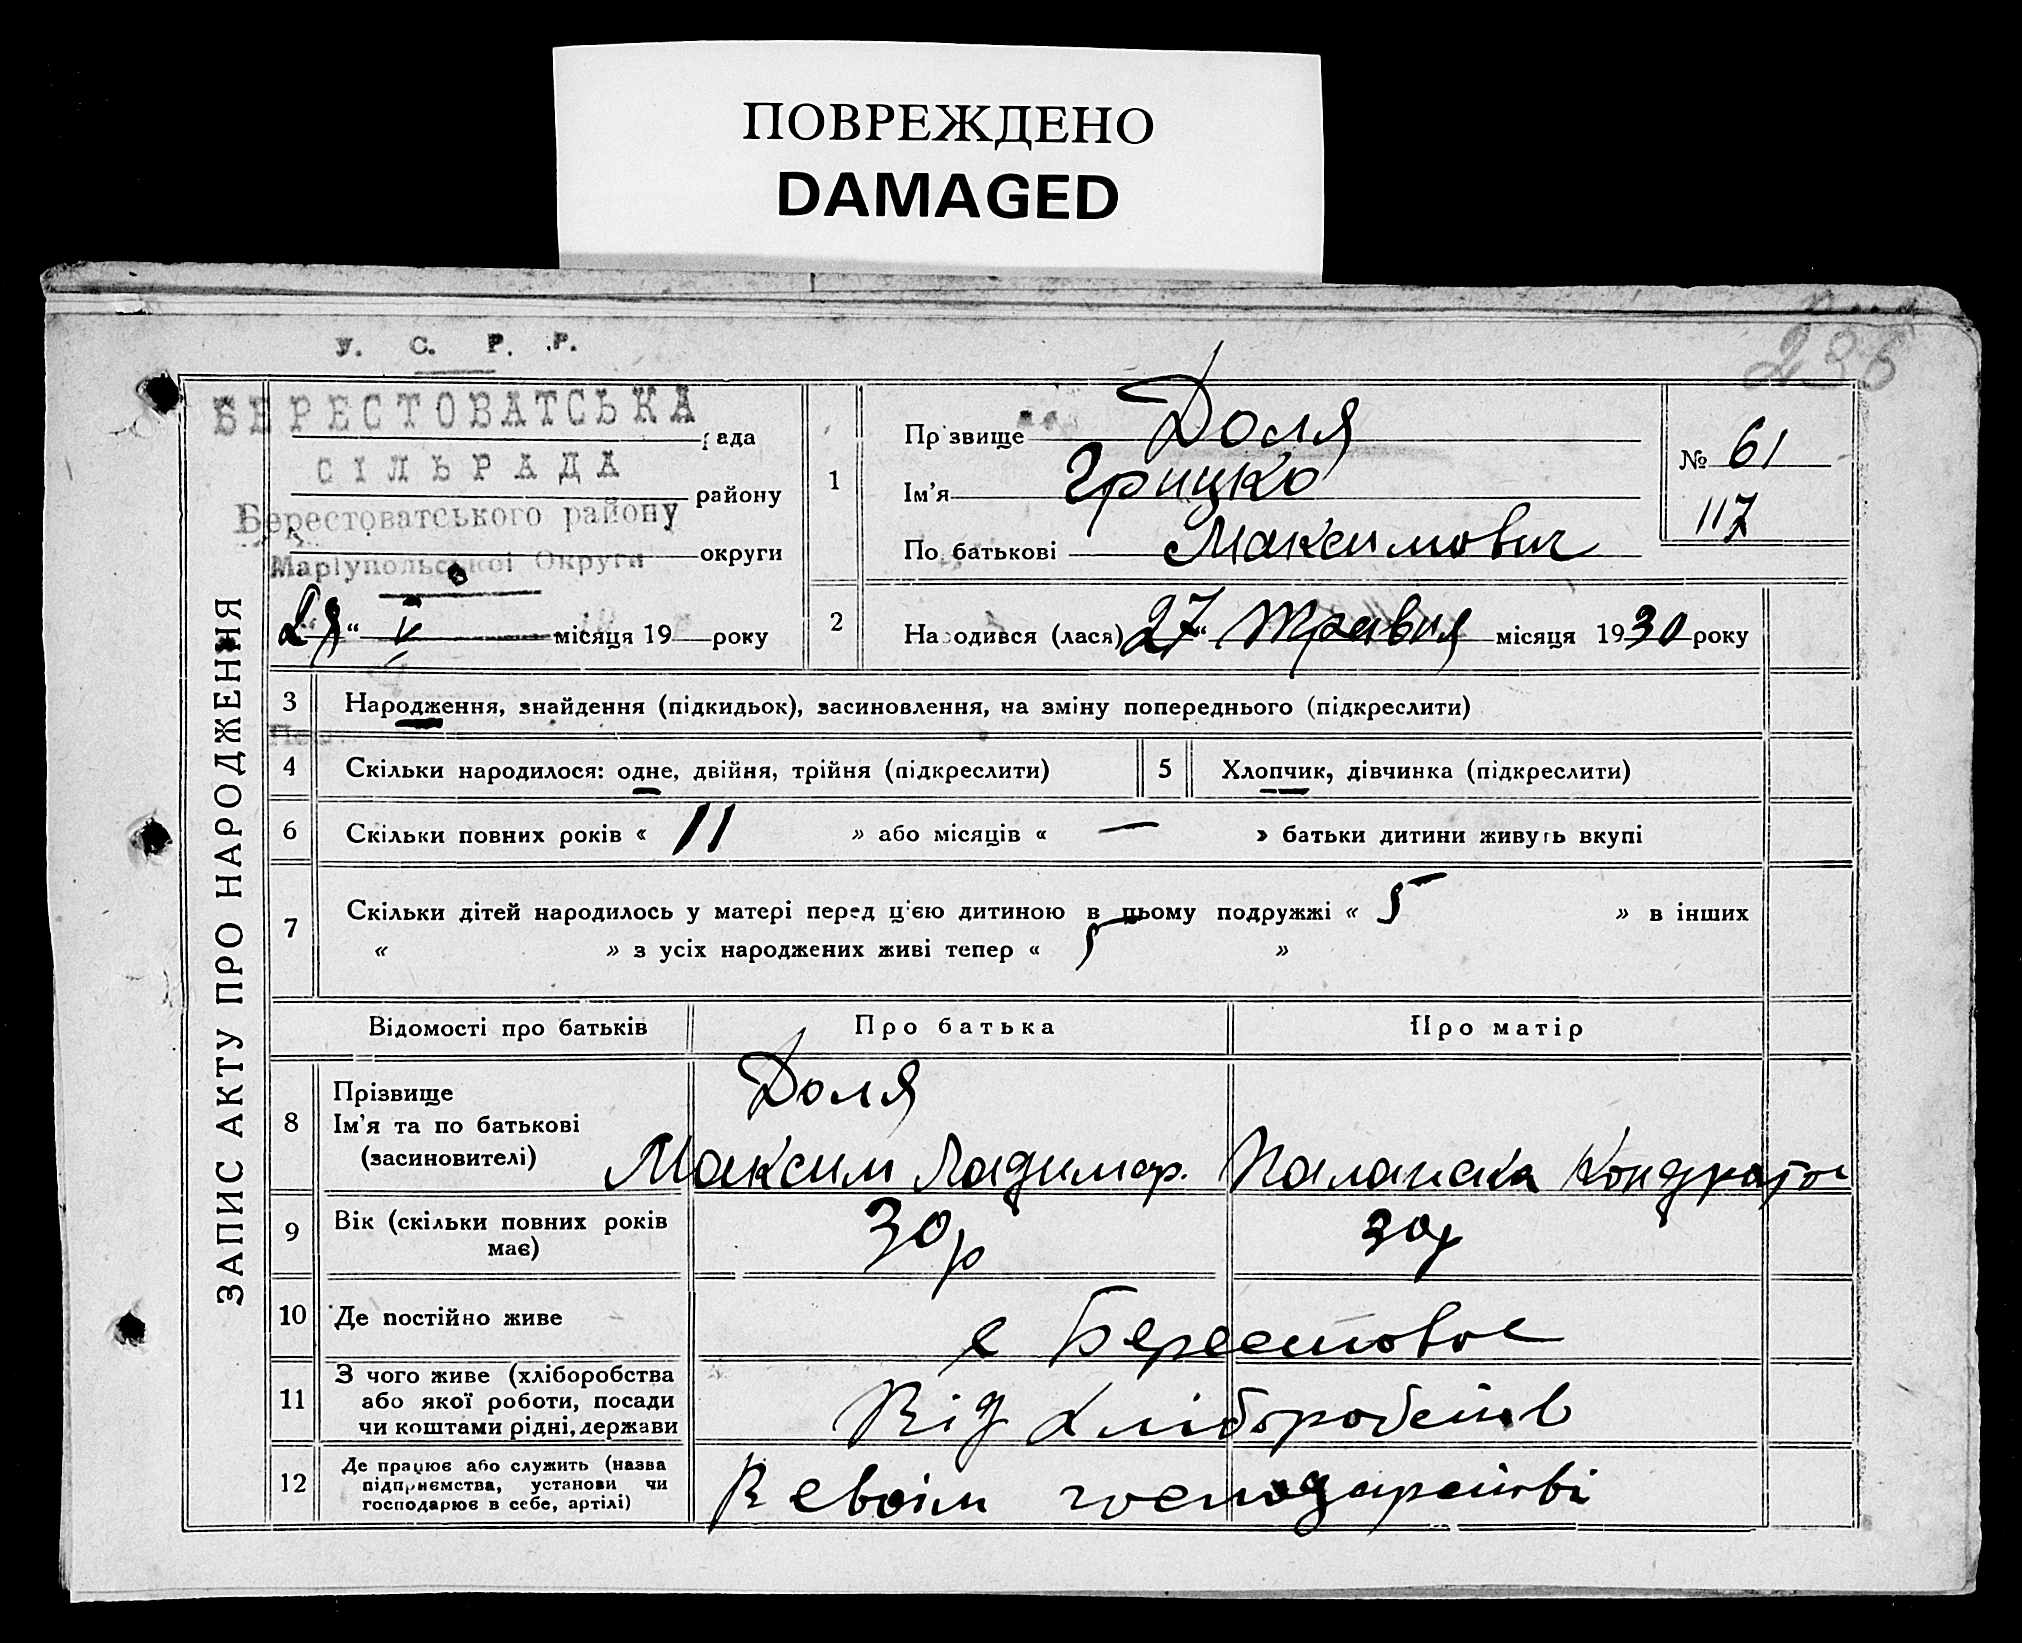 ПОВРЕЖДЕНО
DAMAGED
235
У. С. Р. Р.
БЕРЕСТОВАТСЬКА
рада
СІЛЬРАДА
району
Берестоватського району
округи
Маріупольської Округи
"29" V місяця 19 року
ЗАПИС АКТУ ПРО НАРОДЖЕННЯ
1
Прізвище Доля
Ім'я Грицко
По батькові Максимович
№ 61
117
2
Народився (лася) "27" Травня місяця 1930 року
3 Народження, знайдення (підкидьок), засиновлення, на зміну попереднього (підкреслити)
4 Скільки народилося: одне, двійня, трійня (підкреслити)
5 Хлопчик, дівчинка (підкреслити)
6 Скільки повних років « 11 » або місяців « — » батьки дитини живуть вкупі
7 Скільки дітей народилось у матері перед цією дитиною в цьому подружжі « 5 » в інших
« » з усіх народжених живі тепер « 5 »
Відомості про батьків Про батька Про матір
8 Прізвище
Ім'я та по батькові
(засиновителі)
Доля
Максим Ладимир. Палашка Кондратов
9 Вік (скільки повних років
має)
30 р 30 р
10 Де постійно живе с Берестове
11 З чого живе (хліборобства
або якої роботи, посади
чи коштами рідні, держави
Від хліборобств
12 Де працює або служить (назва
підприємства, установи чи
господарює в себе, артілі)
В своїм господарстві